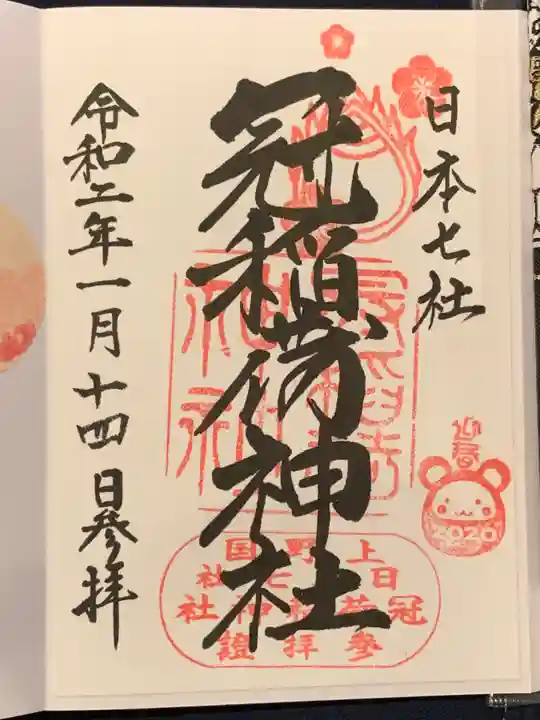 日本七社
冠稲荷神社
令和二年一月十四日参拝
迎春
2020
上野国
日七社
冠稲荷神社
参拝證